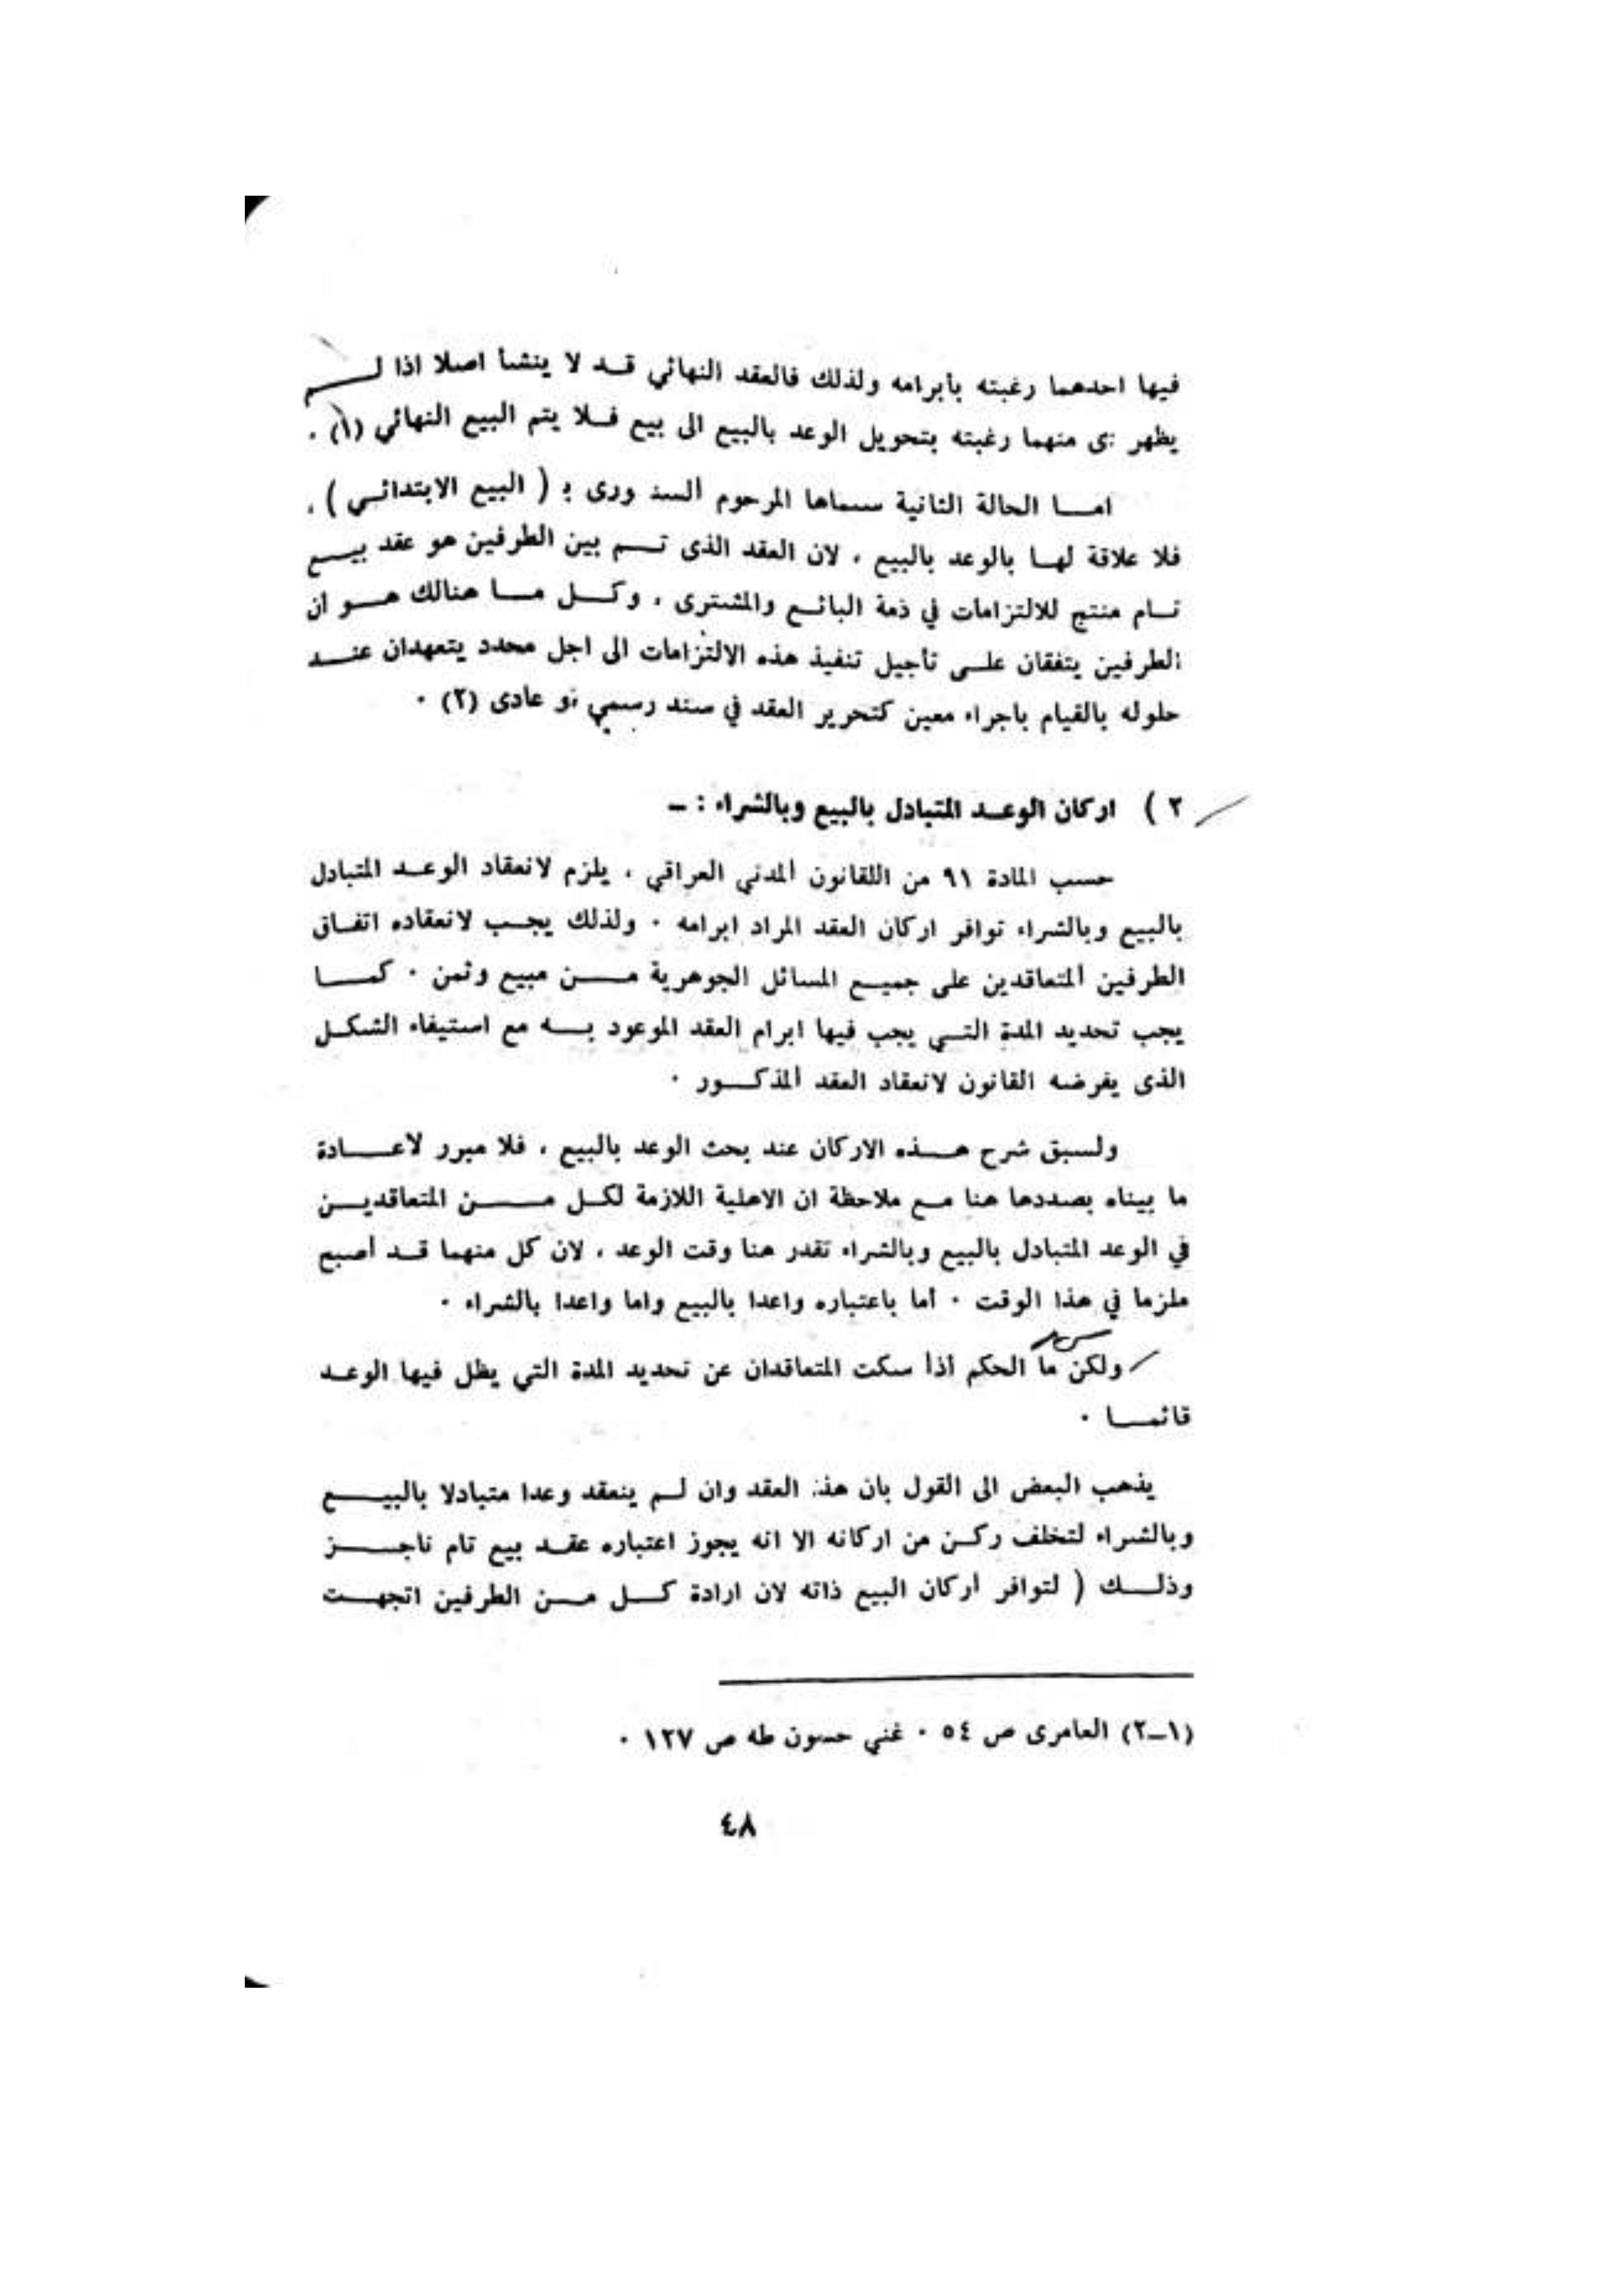 فيها احدهما رغبته بأبرامه ولذلك فالعقد النهائي قد لا ينشأ اصلا اذا لم
يظهر ى منهما رغبته بتحويل الوعد بالبيع الى بيع فلا يتم البيع النهائي (١) .
اما الحالة الثانية سماها المرحوم السنهورى بـ ( البيع الابتدائي ) ،
فلا علاقة لها بالوعد بالبيع ، لان العقد الذى تم بين الطرفين هو عقد بيع
تام منتج للالتزامات في ذمة البائع والمشترى ، وكل ما هنالك هو ان
الطرفين يتفقان على تأجيل تنفيذ هذه الالتزامات الى اجل محدد يتعهدان عند
حلوله بالقيام باجراء معين كتحرير العقد في سند رسمي او عادى (٢) .
٢ ) اركان الوعد المتبادل بالبيع وبالشراء : ـ
حسب المادة ٩١ من اللقانون المدني العراقي ، يلزم لانعقاد الوعد المتبادل
بالبيع وبالشراء توافر اركان العقد المراد ابرامه . ولذلك يجب لانعقاده اتفاق
الطرفين المتعاقدين على جميع المسائل الجوهرية من مبيع وثمن . كما
يجب تحديد المدة التي يجب فيها ابرام العقد الموعود به مع استيفاء الشكل
الذى يفرضه القانون لانعقاد العقد المذكور .
ولسبق شرح هذه الاركان عند بحث الوعد بالبيع ، فلا مبرر لاعادة
ما بيناه بصددها هنا مع ملاحظة ان الاهلية اللازمة لكل من المتعاقدين
في الوعد المتبادل بالبيع وبالشراء تقدر هنا وقت الوعد ، لان كل منهما قد أصبح
ملزما في هذا الوقت . أما باعتباره واعدا بالبيع واما واعدا بالشراء .
ولكن ما الحكم أذا سكت المتعاقدان عن تحديد المدة التي يظل فيها الوعد
قائما .
يذهب البعض الى القول بان هذا العقد وان لم ينعقد وعدا متبادلا بالبيع
وبالشراء لتخلف ركن من اركانه الا انه يجوز اعتباره عقد بيع تام ناجز
وذلك ( لتوافر أركان البيع ذاته لان ارادة كل من الطرفين اتجهت
(١ـ٢) العامرى ص ٥٤ . غني حسون طه ص ١٢٧ .
٤٨